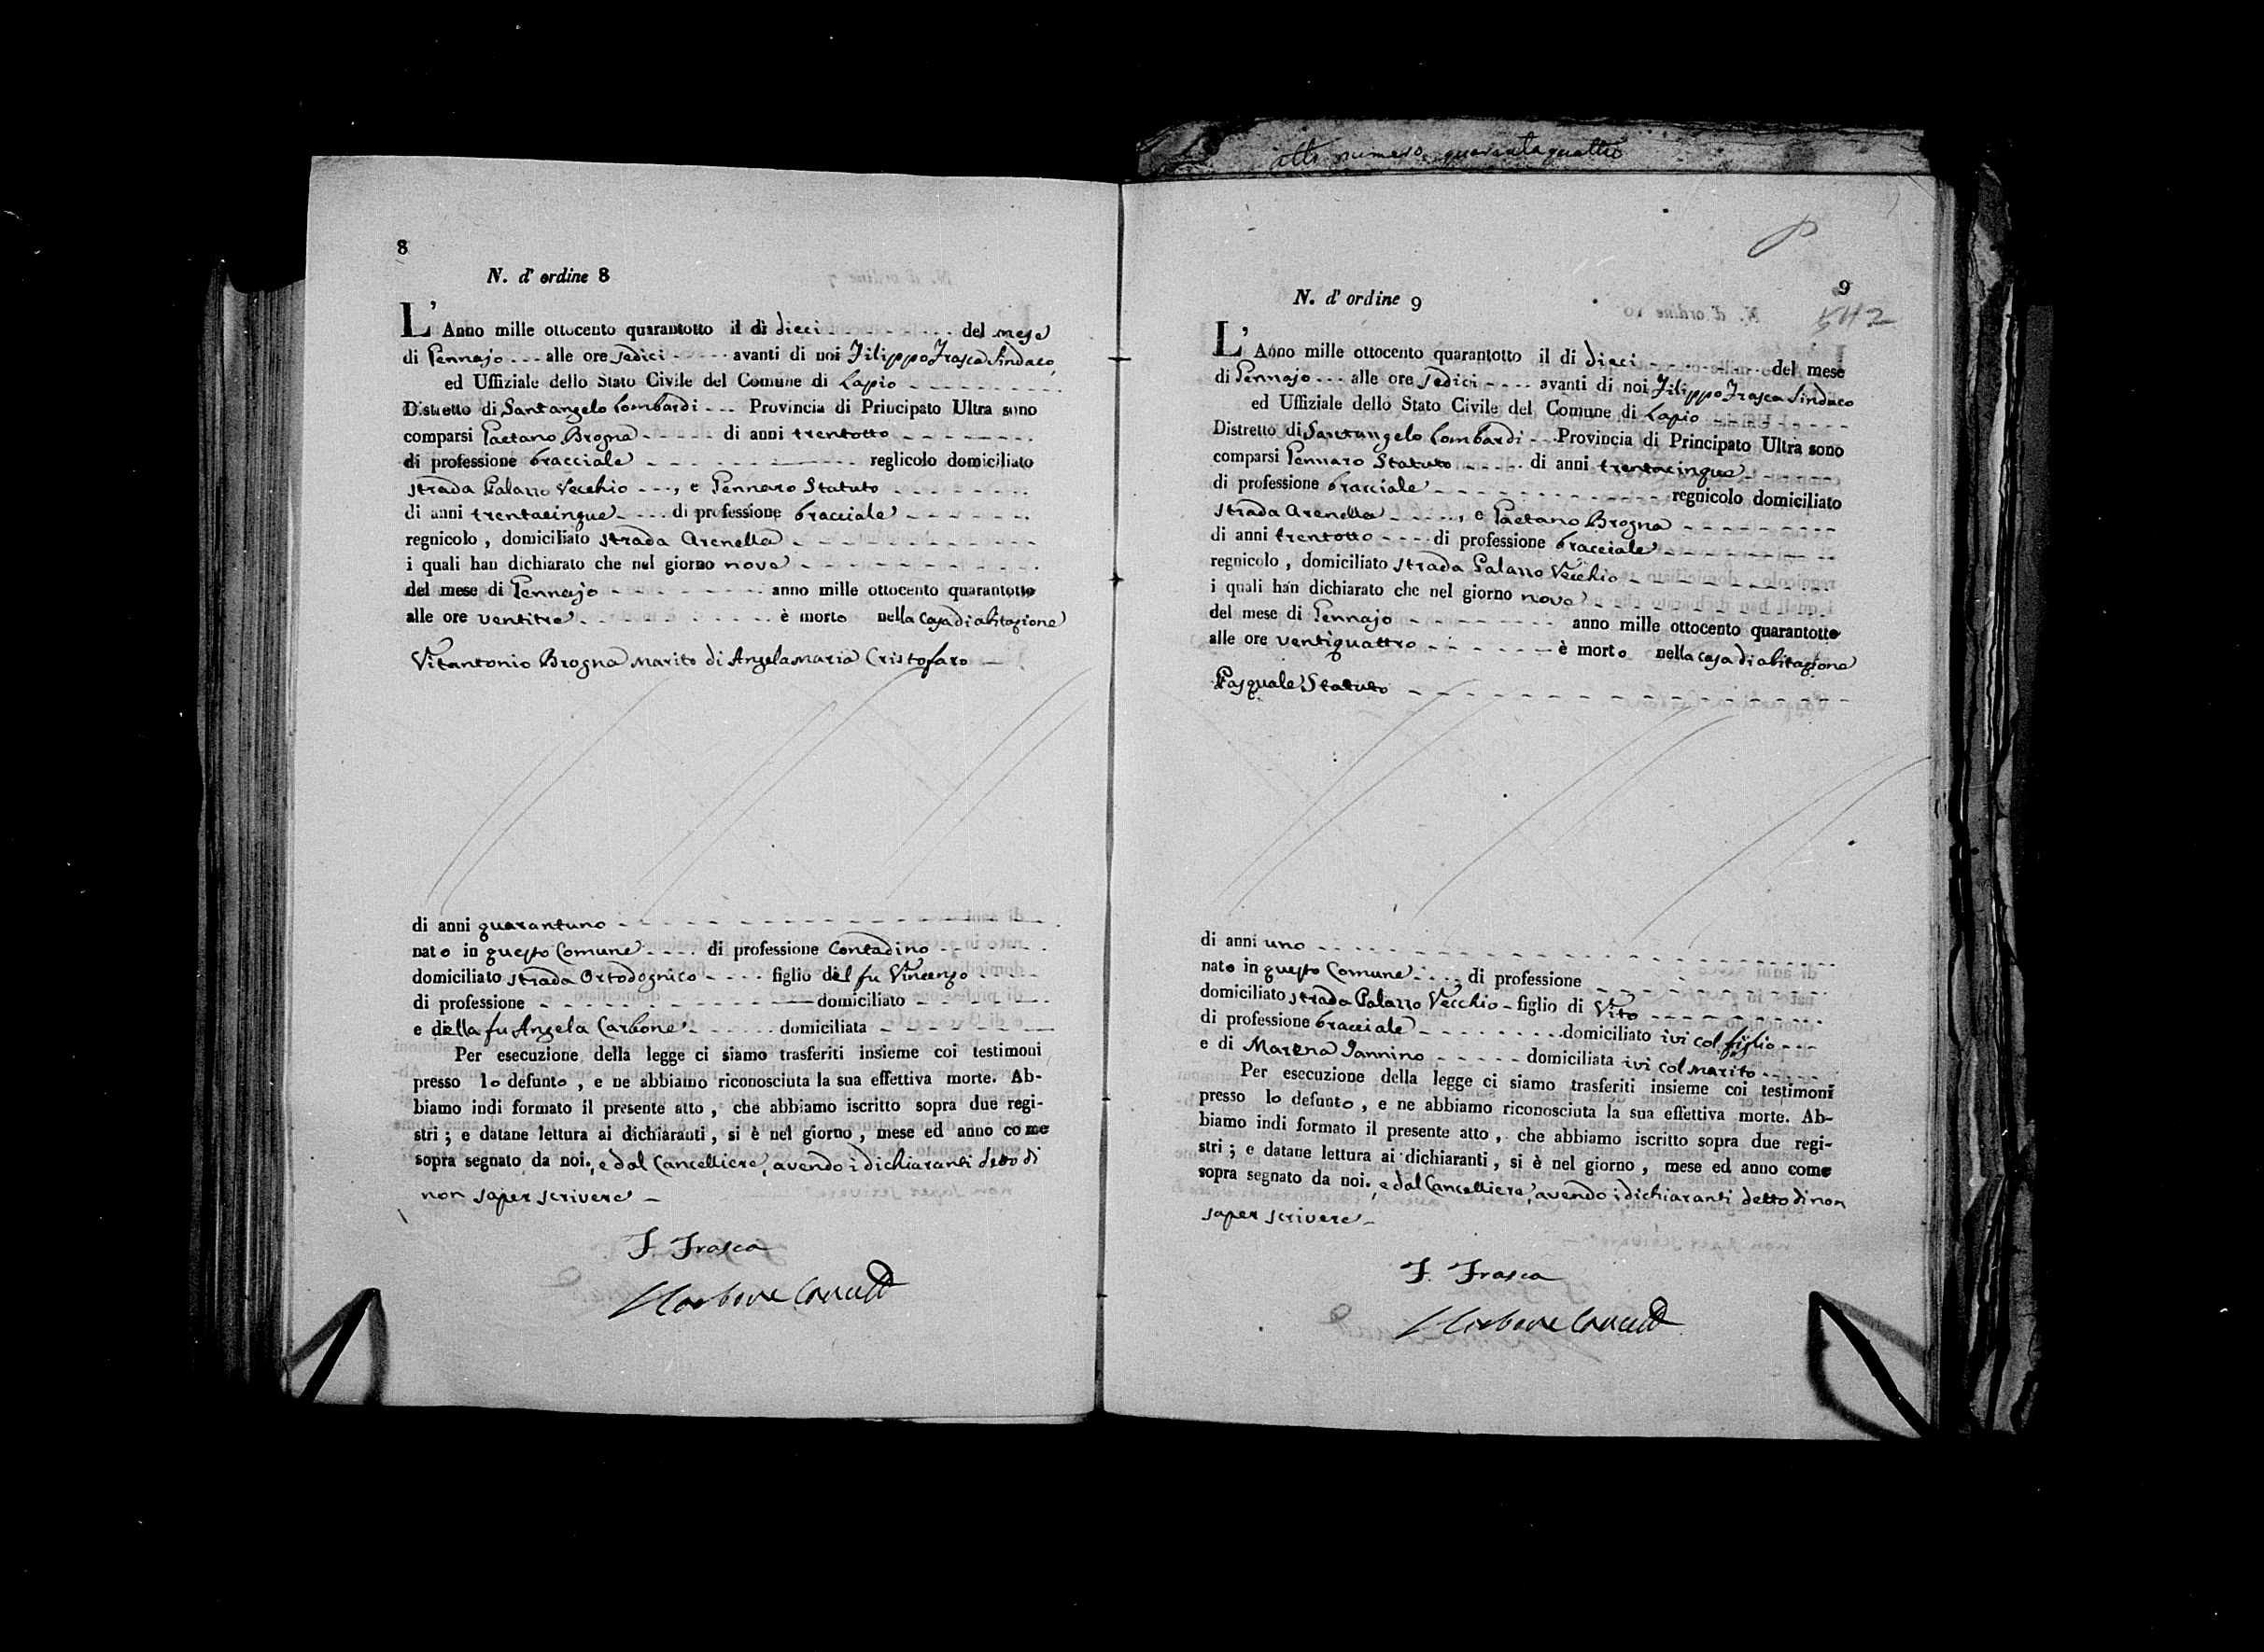 8
N. d' ordine 8
L' Anno mille ottocento quarantotto il dì dieci del mese
di Gennajo alle ore sedici avanti di noi Filippo Frasca Sindaco,
ed Uffiziale dello Stato Civile del Comune di Lapio
Distretto di Santangelo Lombardi Provincia di Principato Ultra sono
comparsi Gaetano Brogna di anni trentotto
di professione bracciale reglicolo domiciliato
strada Palazzo Vecchio , e Gennaro Statuto
di anni trentacinque di professione bracciale
regnicolo , domiciliato strada Arenella
i quali han dichiarato che nel giorno nove
del mese di Gennajo anno mille ottocento quarantotto
alle ore ventitre è morto nella casa di abitazione
Vitantonio Brogna marito di Angelamaria Cristofaro
di anni quarantuno
nato in questo Comune di professione Contadino
domiciliato strada Ortodognico figlio del fu Vincenzo
di professione domiciliato
e della fu Angela Carbone domiciliata
Per esecuzione della legge ci siamo trasferiti insieme coi testimoni
presso lo defunto , e ne abbiamo riconosciuta la sua effettiva morte. Ab-
biamo indi formato il presente atto , che abbiamo iscritto sopra due regi-
stri ; e datane lettura ai dichiaranti , si è nel giorno , mese ed anno come
sopra segnato da noi, e dal Cancelliere, avendo i dichiaranti detto di
non saper scrivere
F. Frasca
atto numero quarantaquattro
9
542
N. d' ordine 9
L' Anno mille ottocento quarantotto il di dieci del mese
di Gennajo alle ore sedici avanti di noi Filippo Frasca Sindaco
ed Uffiziale dello Stato Civile del Comune di Lapio
Distretto di Santangelo Lombardi Provincia di Principato Ultra sono
comparsi Gennaro Statuto di anni trentacinque
di professione bracciale regnicolo domiciliato
strada Arenella , e Gaetano Brogna
di anni trentotto di professione bracciale
regnicolo , domiciliato strada Palazzo Vecchio
i quali han dichiarato che nel giorno nove
del mese di Gennajo anno mille ottocento quarantotto
alle ore ventiquattro è morto nella casa di abitazione
Pasquale Statuto
di anni uno
nato in questo Comune di professione
domiciliato strada Palazzo Vecchio figlio di Vito
di professione bracciale domiciliato ivi col figlio
e di Marzna Iannino domiciliata ivi col marito
Per esecuzione della legge ci siamo trasferiti insieme coi testimoni
presso lo defunto , e ne abbiamo riconosciuta la sua effettiva morte. Ab-
biamo indi formato il presente atto , che abbiamo iscritto sopra due regi-
stri ; e datane lettura ai dichiaranti , si è nel giorno , mese ed anno come
sopra segnato da noi, e dal Cancelliere, avendo i dichiaranti detto di non
saper scrivere
F. Frasca